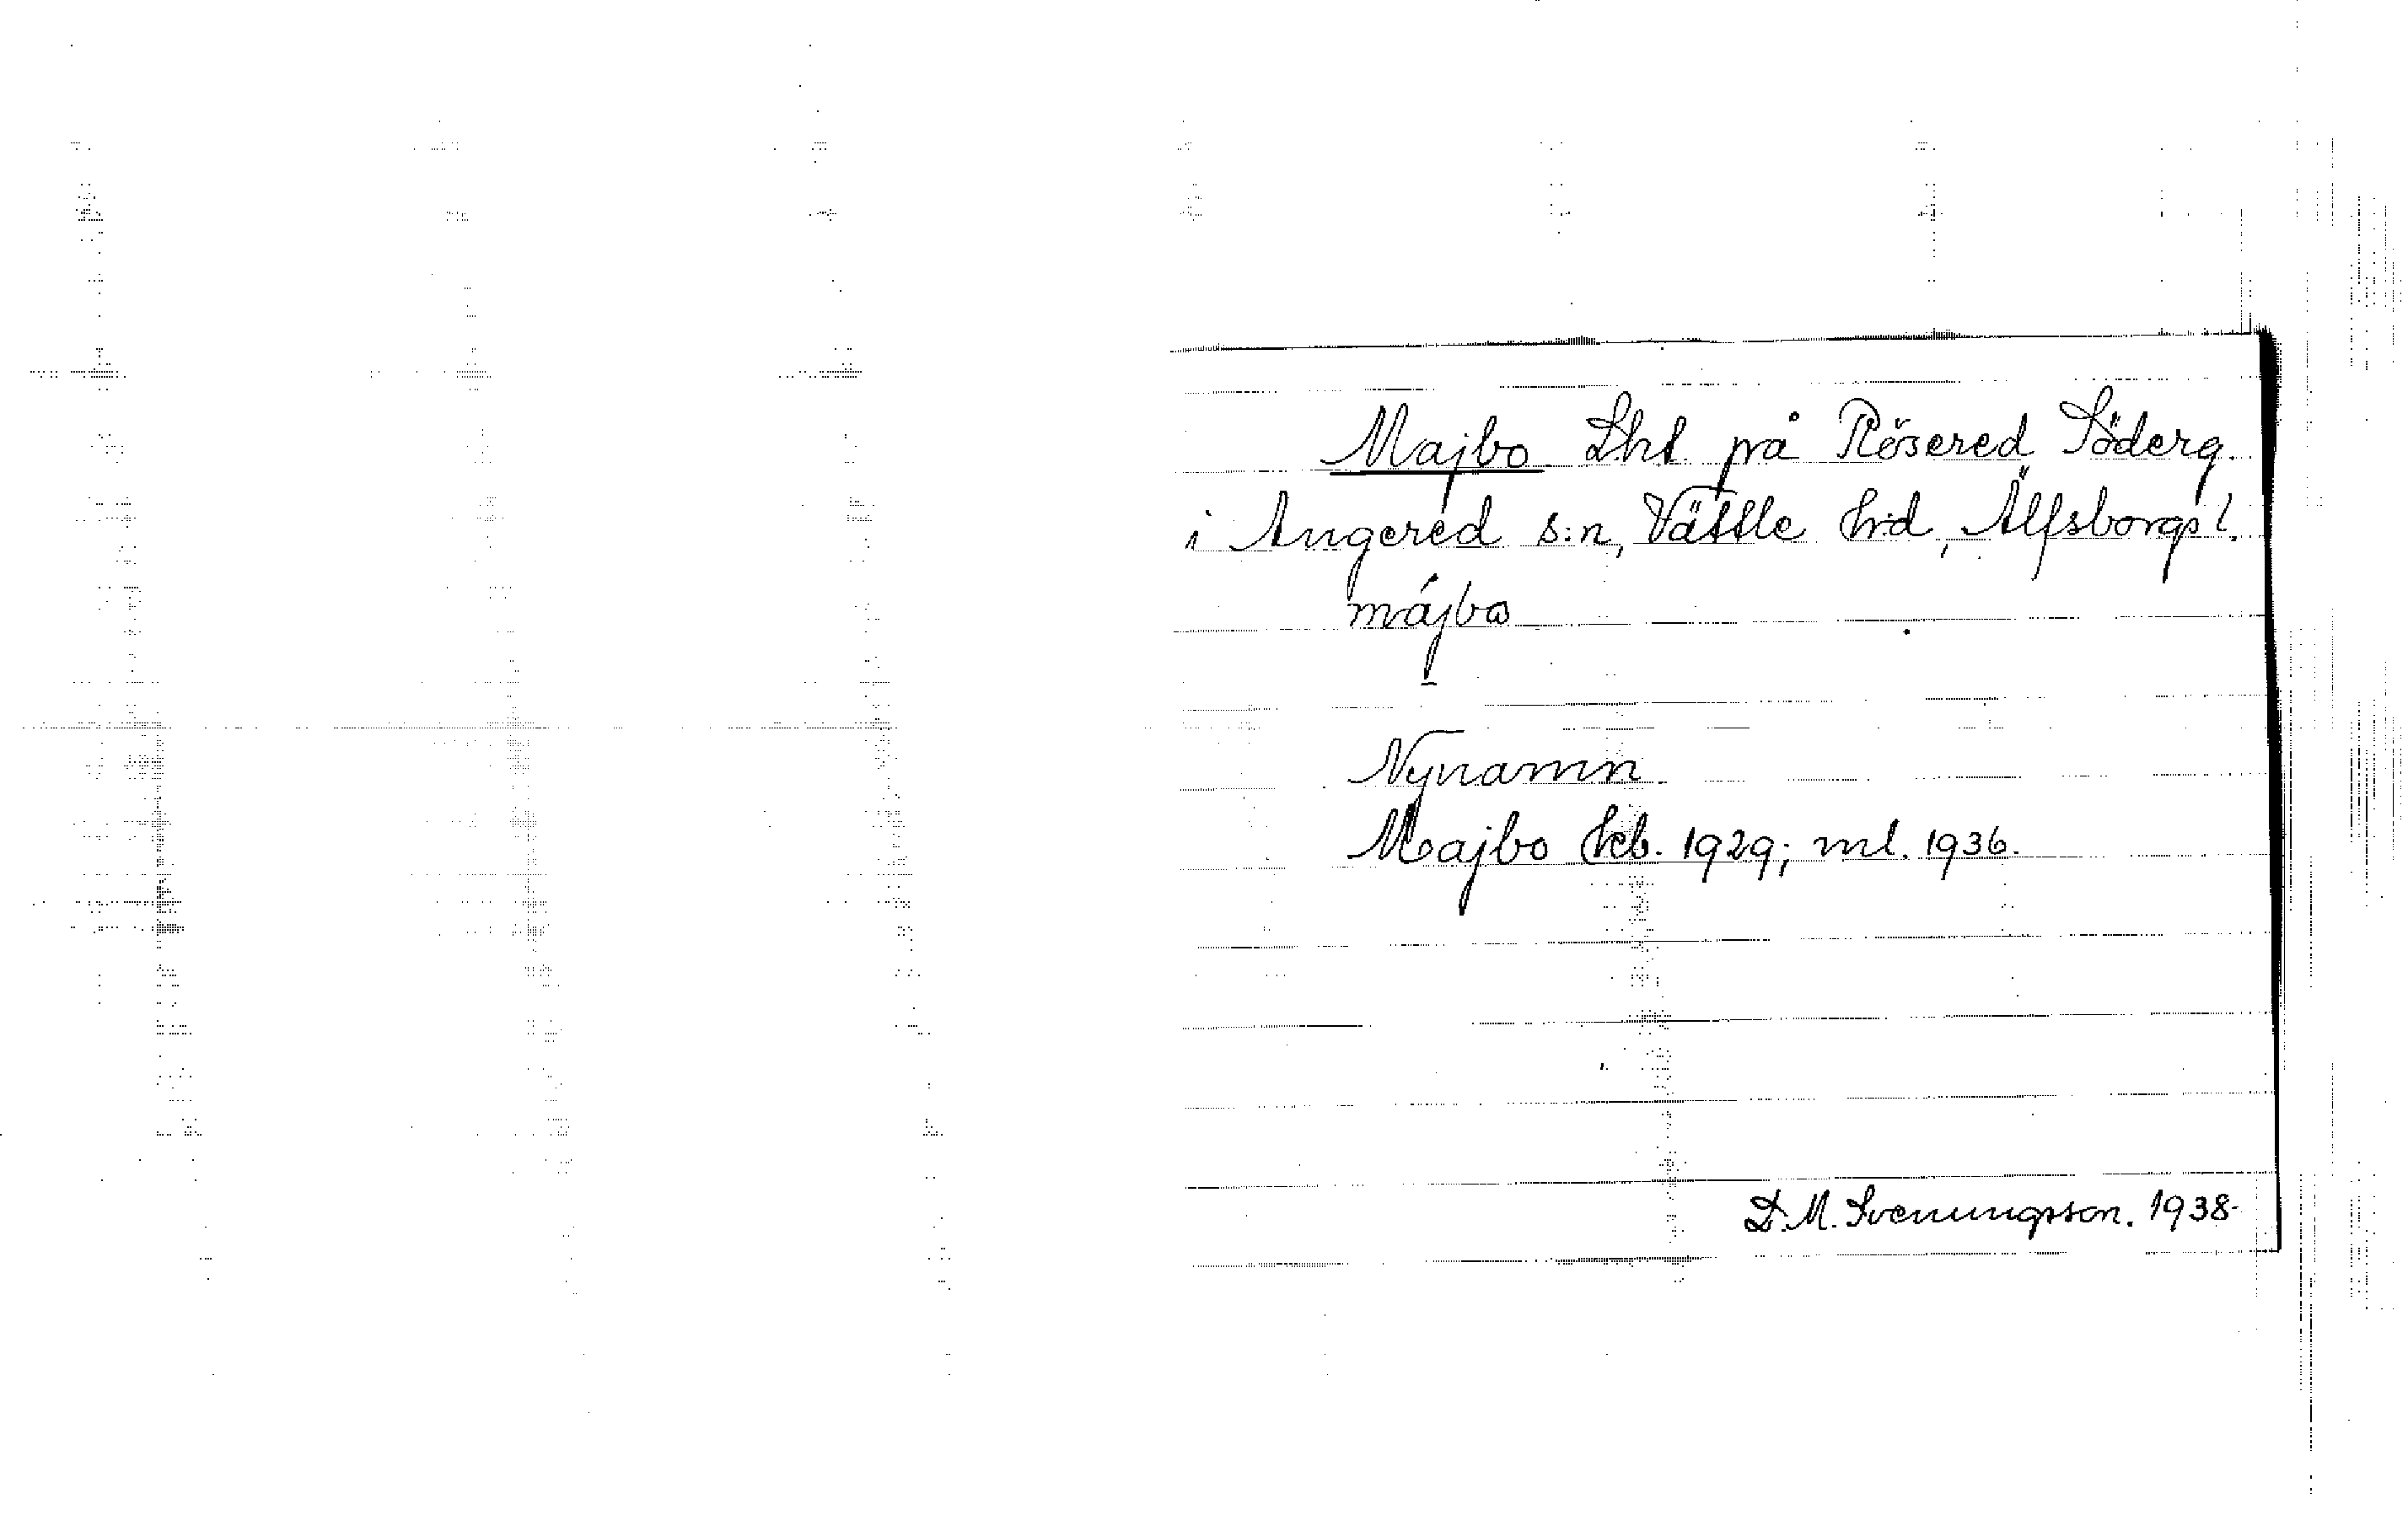 Majbo Lht på Rösered Söderg.
i Angered s:n, Vättle hd, Älfsborgs l.
májbω
Nynamn
Majbo hfb. 1929; ml. 1936.
D. M. Svenungsson. 1938.